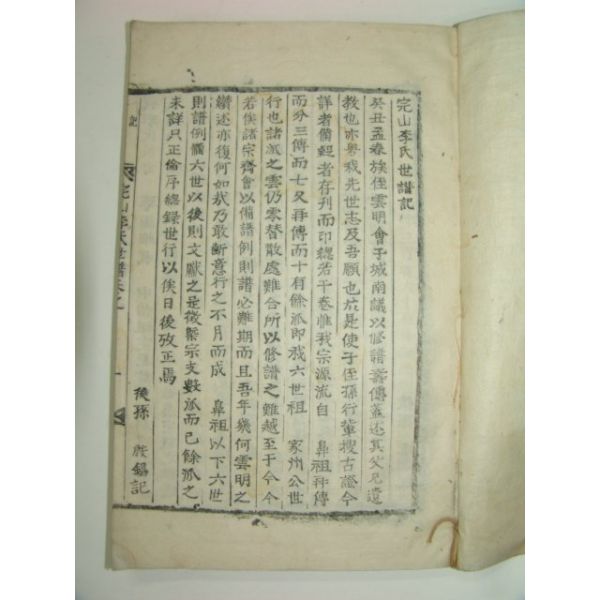 完山李氏世譜記
癸丑孟春族侄雲明會于城南議以修譜壽傳盖述其父兄遺
敎也亦粤我先世志及吾願也於是使子侄孫行輩搜古證今
詳者備畧者存刋而印總若干卷惟我宗源流自 鼻祖再傳
而分三傳而七又再傳而十有餘派即我六世祖 家州公世
行也諸派之雲仍零替散處難合所以修譜之難越至于今今
若俟諸宗齊會以備譜例則譜必難期而且吾年幾何雲明之
纘述亦復何如哉乃敢斷意行之不月而成 鼻祖以下六世
則譜例備六世以後則文獻之是徵繫宗支數派而已餘派之
未詳只正倫序總錄世行以俟日後攷正焉
後孫 記
記 完山李氏世譜卷之一